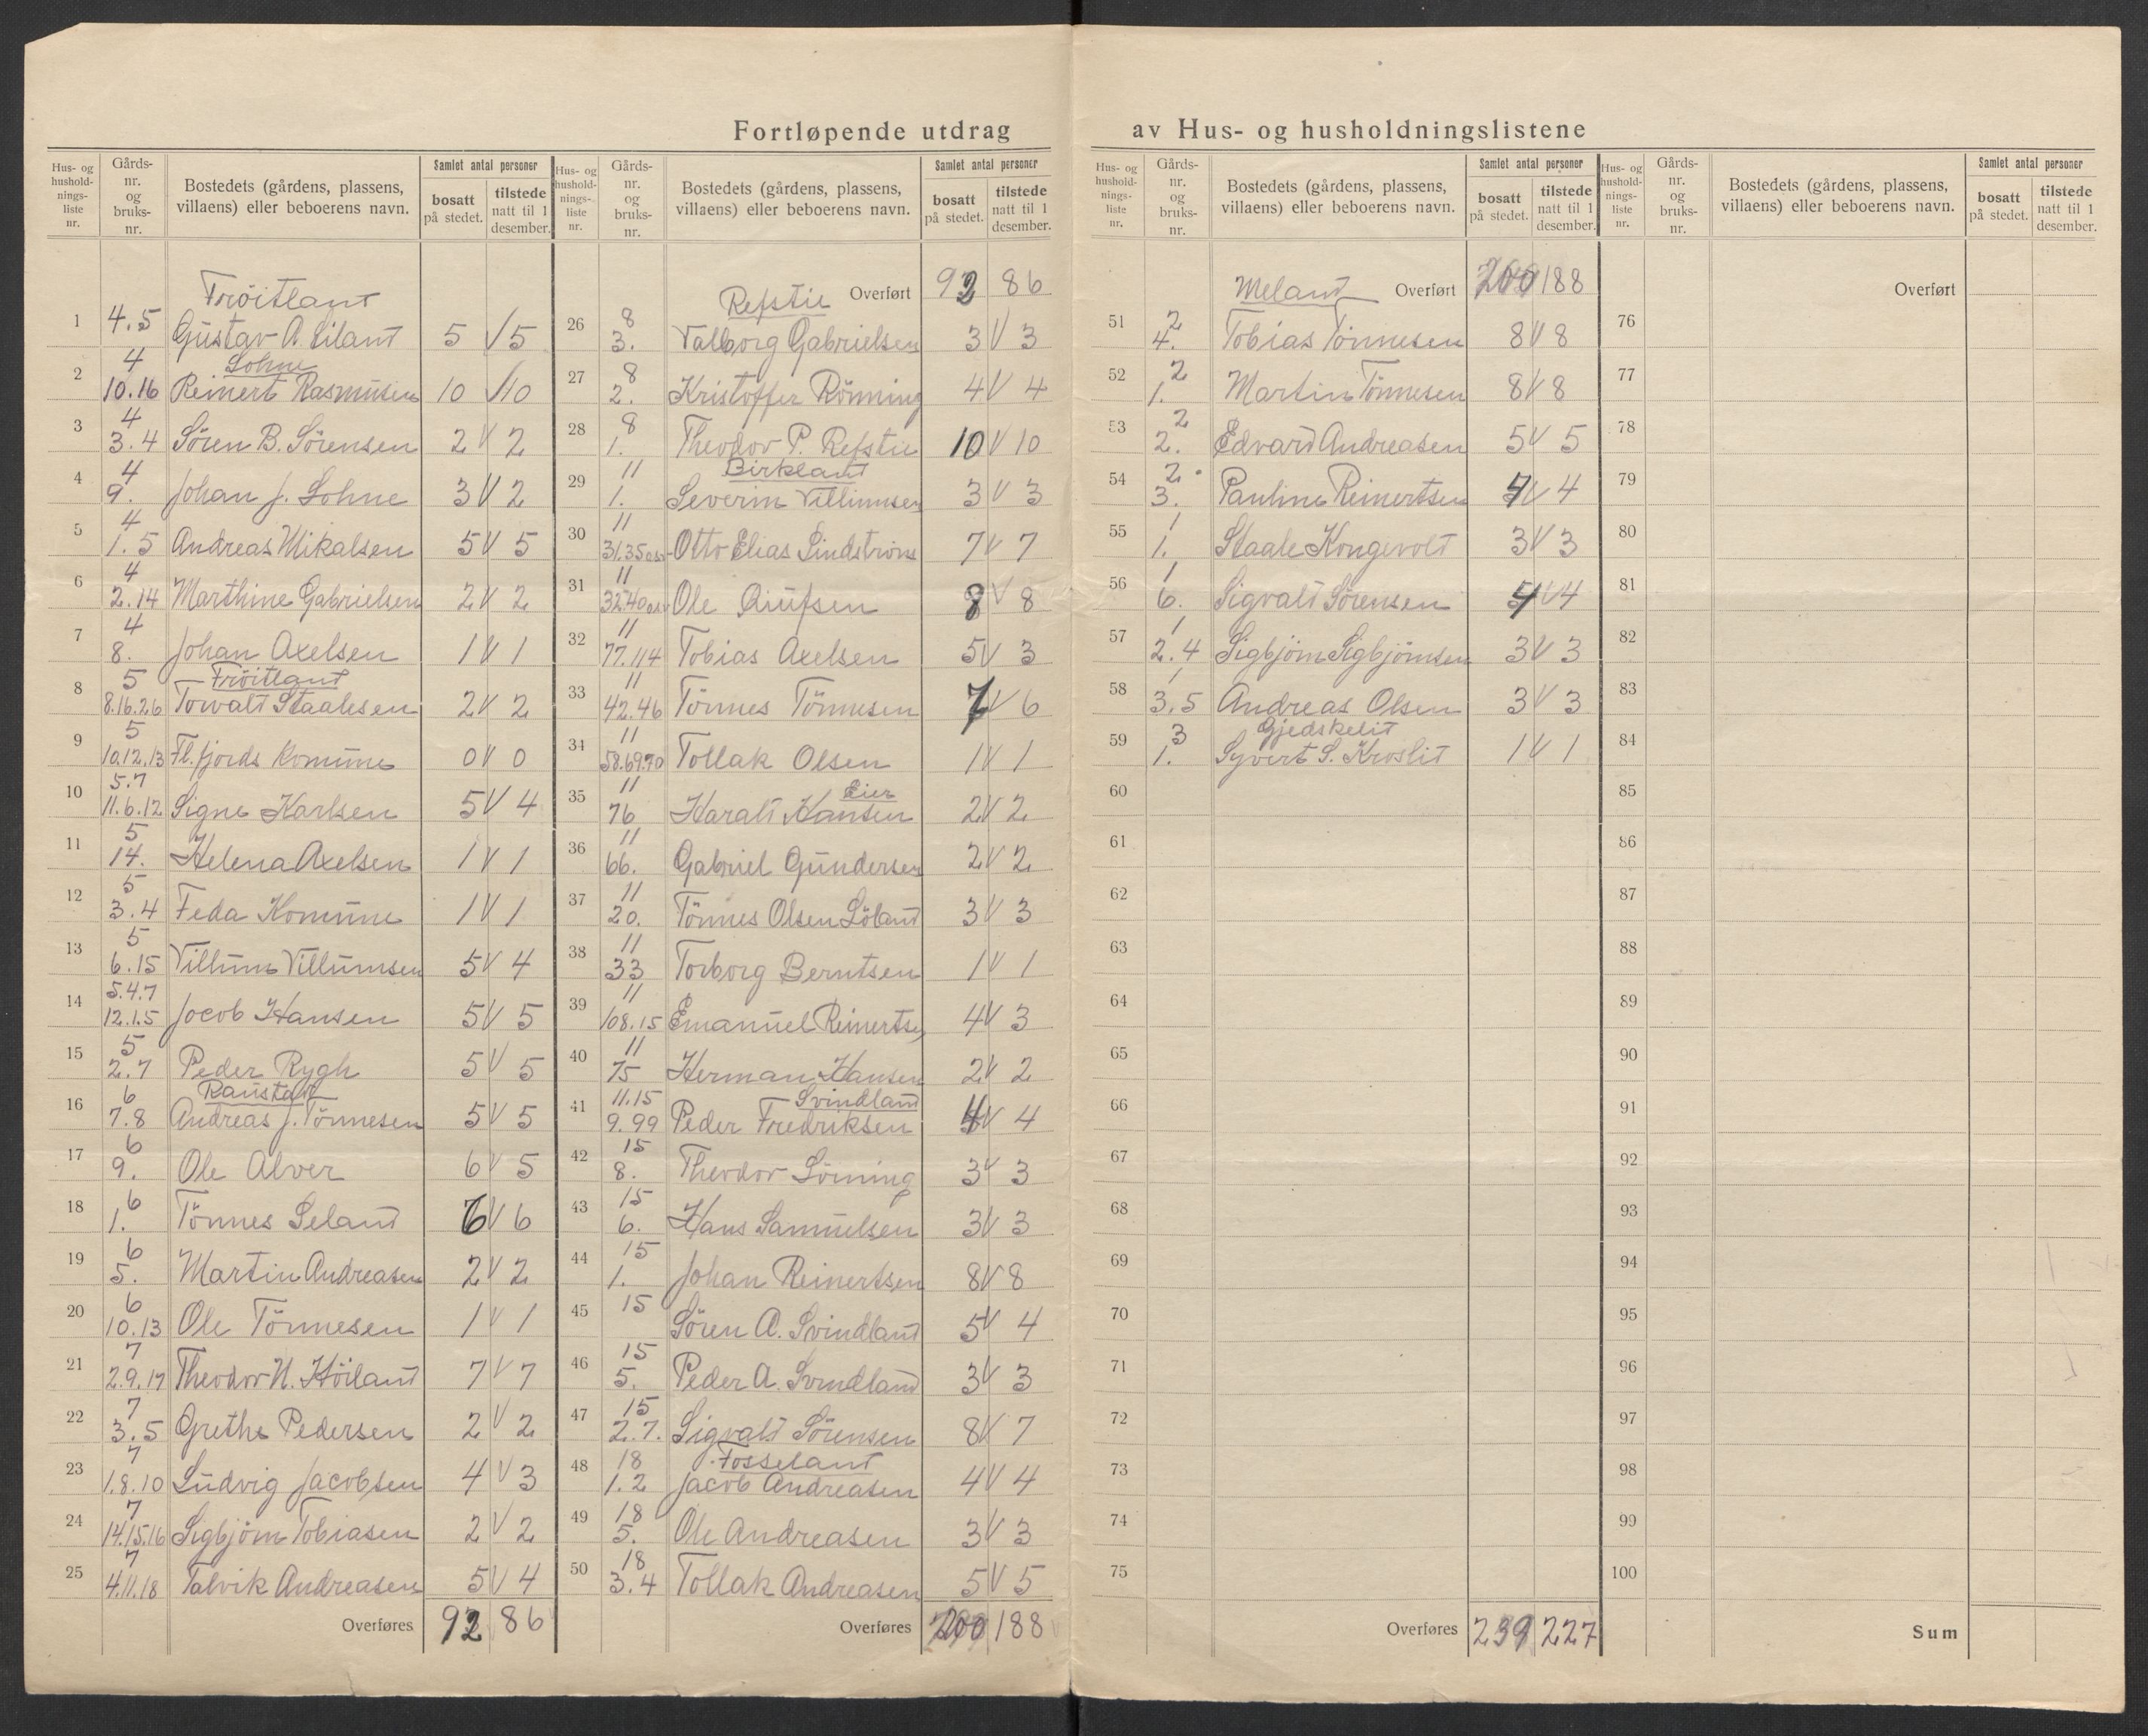 Fortløpende utdrag av Hus- og husholdningslistene
Hus- og hushold- nings- liste nr. Gårds- nr. og bruks- nr. Bostedets (gårdens, plassens, villaens) eller beboerens navn. Samlet antal personer bosatt på stedet. tilstede natt til 1 desember.
Tröitland
1 4.5 Gustav A. Eiland 5 V 5
Lohne
2 4 10.16 Reinert Rasmusen 10 V 10
3 4 3.4 Sören B. Sörensen 2 V 2
4 4 9. Johan J. Lohne 3 V 2
5 4 1.5 Andreas Mikalsen 5 V 5
6 4 2.14 Marthine Gabrielsen 2 V 2
7 4 8. Johan Axelsen 1 V 1
Fröitland
8 5 8.16.26 Torvald Staalesen 2 V 2
9 5 10.12.13 Fl.fjords Komune 0 V 0
10 5.7 11.6.12 Signe Karlsen 5 V 4
11 5 14. Helena Axelsen 1 V 1
12 5 3.4 Feda Komune 1 V 1
13 5 6.15 Villum Villumsen 5 V 4
14 5.4.7 12.1.5 Jocob Hansen 5 V 5
15 5 2.7 Peder Rygh 5 V 5
Raustad
16 6 7.8 Andreas J. Tönnesen 5 V 5
17 6 9. Ole Alver 6 V 5
18 6 1. Tönnes Seland 6 V 6
19 6 5. Martin Andreasen 2 V 2
20 6 10.13 Ole Tönnesen 1 V 1
21 7 2.9.17 Theodor N. Höiland 7 V 7
22 7 3.5 Grethe Pedersen 2 V 2
23 7 1.8.10 Ludvig Jacobsen 4 V 3
24 7 14.15.16 Sigbjörn Tobiasen 2 V 2
25 7 4.11.18 Talvik Andreasen 5 V 4
Overføres 92 86
Hus- og hushold- nings- liste nr. Gårds- nr. og bruks- nr. Bostedets (gårdens, plassens, villaens) eller beboerens navn. Samlet antal personer bosatt på stedet. tilstede natt til 1 desember.
Refstie Overført 92 86
26 8 3. Valborg Gabrielsen 3 V 3
27 8 2. Kristoffer Rönning 4 V 4
28 8 1. Theodor P. Refstie 10 V 10
Birkland
29 11 1. Severin Villumsen 3 V 3
30 11 31.35 Otto Elias Lindström 7 V 7
31 11 32.40 Ole 8 V 8
32 11 77.114 Tobias Axelsen 5 V 3
33 11 42.46 Tönnes Tönnesen 7 V 6
34 11 58.69.70 Tollak Olsen 1 V 1
Eier
35 11 76 Harald Hansen 2 V 2
36 11 66. Gabriel Gundersen 2 V 2
37 11 20. Tönnes Olsen Löland 3 V 3
38 11 33 Torborg Berntsen 1 V 1
39 11 108.15 Emanuel Reinertsen 4 V 3
40 11 75 Herman Hansen 2 V 2
Svindland
41 11.15 9.99 Peder Fredriksen 4 V 4
42 15 8. Theodor Lörning 3 V 3
43 15 6. Hans Samuelsen 3 V 3
44 15 1. Johan Reinertsen 8 V 8
45 15 Sören A. Svindland 5 V 4
46 15 5. Peder A. Svindland 3 V 3
47 15 2.7. Sigvald Sörensen 8 V 7
Fosseland
48 18 1.2 Jacob Andreasen 4 V 4
49 18 5. Ole Andreasen 3 V 3
50 18 3.4 Tollak Andreasen 5 V 5
Overføres 200 188
Hus- og hushold- nings- liste nr. Gårds- nr. og bruks- nr. Bostedets (gårdens, plassens, villaens) eller beboerens navn. Samlet antal personer bosatt på stedet. tilstede natt til 1 desember.
Meland Overført 200 188
51 2 4. Tobias Tönnesen 8 V 8
52 2 1. Martin Tönnesen 8 V 8
53 2 2. Edvard Andreasen 5 V 5
54 2 3. Pauline Reinertsen 4 V 4
55 1 1. Staale Kongevold 3 V 3
56 1 6. Sigvald Sörensen 4 V 4
57 1 2.4 Sigbjörn Sigbjörnsen 3 V 3
58 1 3.5 Andreas Olsen 3 V 3
Gjedskelid
59 3 1. Syvert S. Kroslid 1 V 1
60
61
62
63
64
65
66
67
68
69
70
71
72
73
74
75
Overføres 239 227
Hus- og hushold- nings- liste nr. Gårds- nr. og bruks- nr. Bostedets (gårdens, plassens, villaens) eller beboerens navn. Samlet antal personer bosatt på stedet. tilstede natt til 1 desember.
Overført
76
77
78
79
80
81
82
83
84
85
86
87
88
89
90
91
92
93
94
95
96
97
98
99
100
Sum